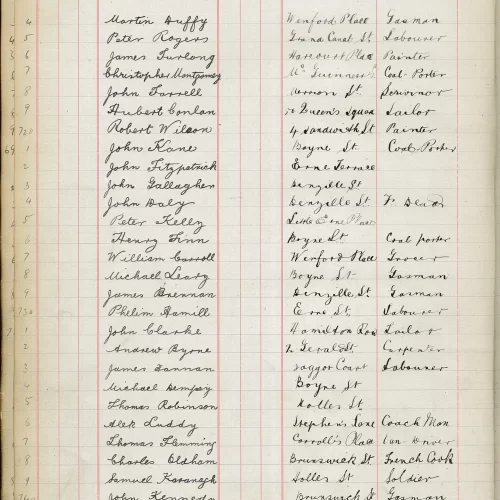 4 Martin Duffy Wexford Place Gasman
4 5 Peter Rogers Grand Canal St. Labourer
6 James Furlong Harcourt Place Painter
7 Christopher Montgomey Mc Guinness's Coal-Porter
8 John Farrell Vernon St. Scrivinor
9 Hubert Conlan Queen's Square Sailor
9 720 Robert Wilson 4 Sandwith St Painter
69 1 John Kane Boyne St Coal Porter
2 John Fitzpatrick Erne Terrace
3 John Gallagher Denzille St
4 John Daly Denzille St
5 Peter Kelly Little Erne Place
6 Henry Finn Boyse St. Coal porter
7 William Carroll Wexford Place Grocer
8 Michael Leary Boyne St Gasman
9 James Brennan Denzille St. Gasman
730 Phelim Hamill Erne St. Labourer
1 John Clarke Hamilton Row Tailor
2 Andrew Byrne Gerald St. Carpenter
3 James Bannan Court Labourer
4 Michael Dempsy Boyne St
5 Thomas Robinson Holles St.
6 Alek Luddy Stephen's Lane Coach Man
7 Thomas Flemming Carroll's Place Van Driver
8 Charles Oldham Brunswick St. French Cook
9 Samuel Kavanagh Holles St Soldier
John Kennedy Brunswick St Gasman